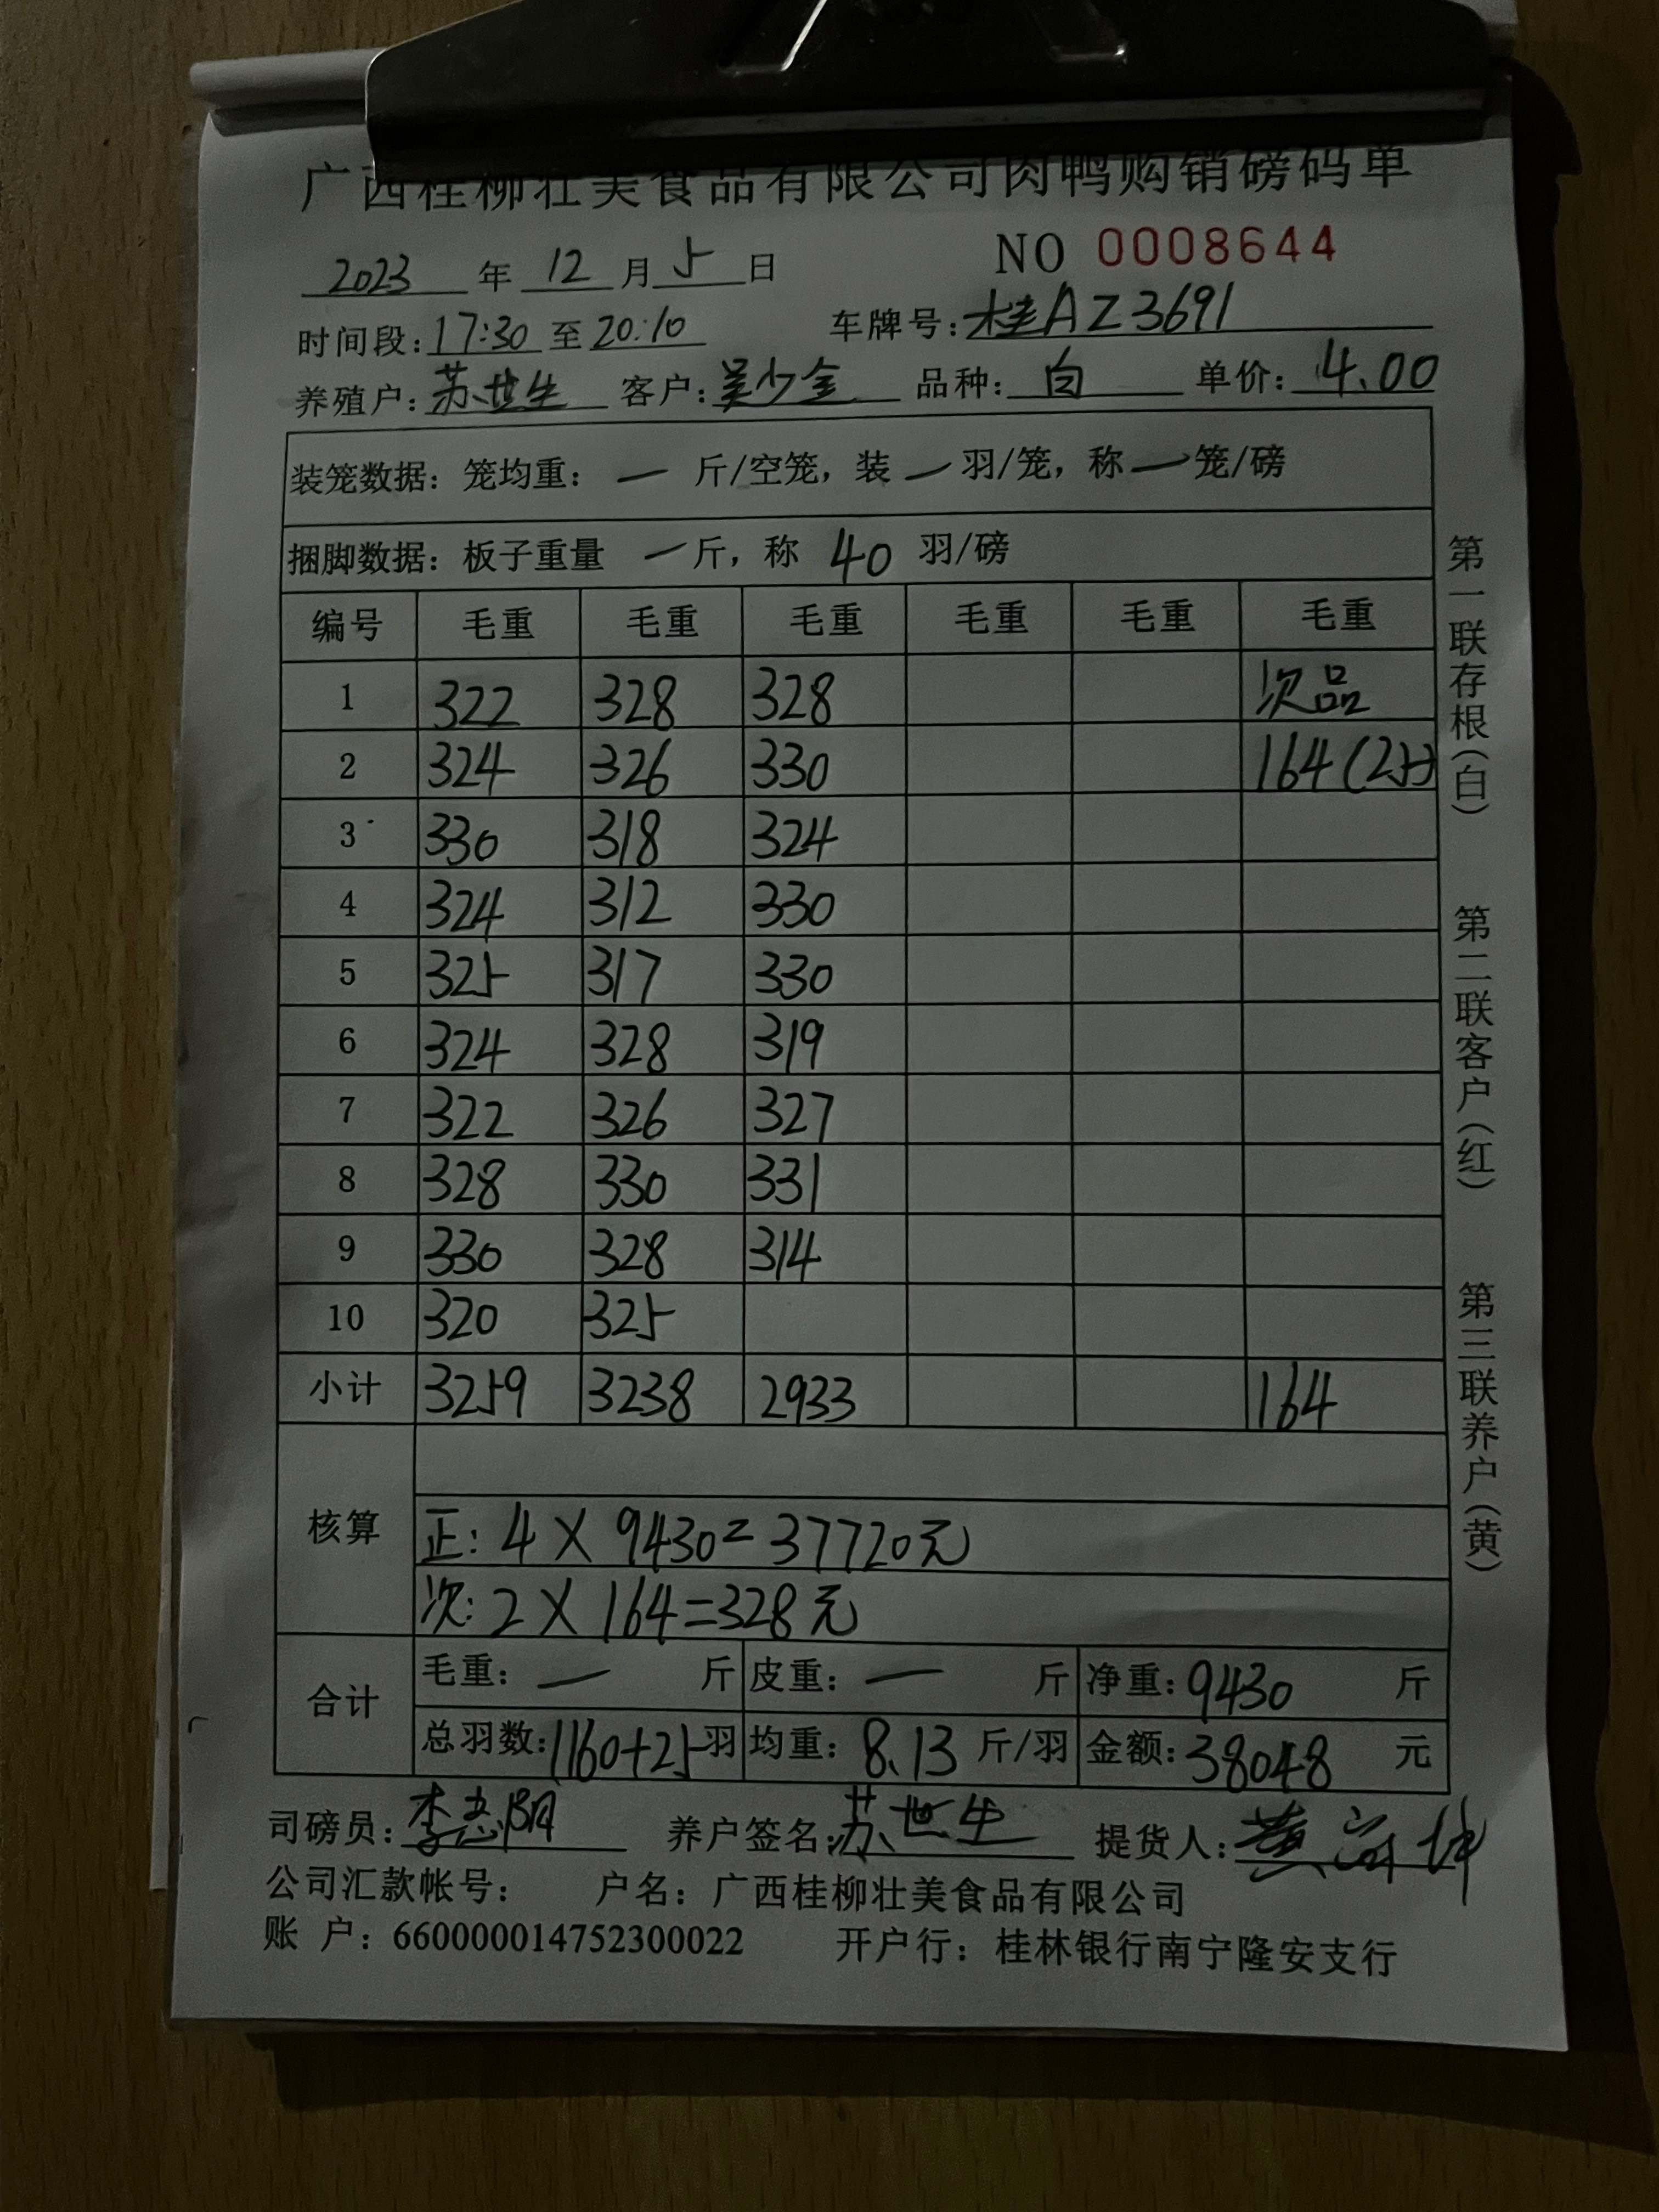 广西桂柳壮美食品有限公司肉鸭购销磅码单
2023 年 12 月 5 日 NO 0008644
时间段: 17:30 至 20:10 车牌号: 桂AZ3691
养殖户: 苏世生 客户: 吴少金 品种: 白 单价: 4.00
装笼数据: 笼均重: 一 斤/空笼, 装 一 羽/笼, 称 一 笼/磅
捆脚数据: 板子重量 一 斤, 称 40 羽/磅
编号 毛重 毛重 毛重 毛重 毛重 毛重
1 322 328 328 次品
2 324 326 330 164(25)
3 330 318 324
4 324 312 330
5 325 317 330
6 324 328 319
7 322 326 327
8 328 330 331
9 330 328 314
10 320 325
小计 3259 3238 2933 164
核算
正: 4 X 9430=37720元
次: 2 X 164=328元
合计
毛重: 一 斤 皮重: 一 斤 净重: 9430 斤
总羽数: 1160+25 羽 均重: 8.13 斤/羽 金额: 38048 元
司磅员: 李志阳 养户签名: 苏世生 提货人: 黄
公司汇款帐号: 户名: 广西桂柳壮美食品有限公司
账 户: 660000014752300022 开户行: 桂林银行南宁隆安支行
第一联存根(白)
第二联客户(红)
第三联养户(黄)